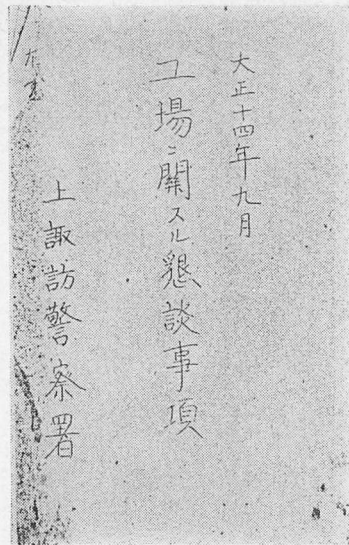 大正十四年九月
工場ニ関スル懇談事項
上諏訪警察署